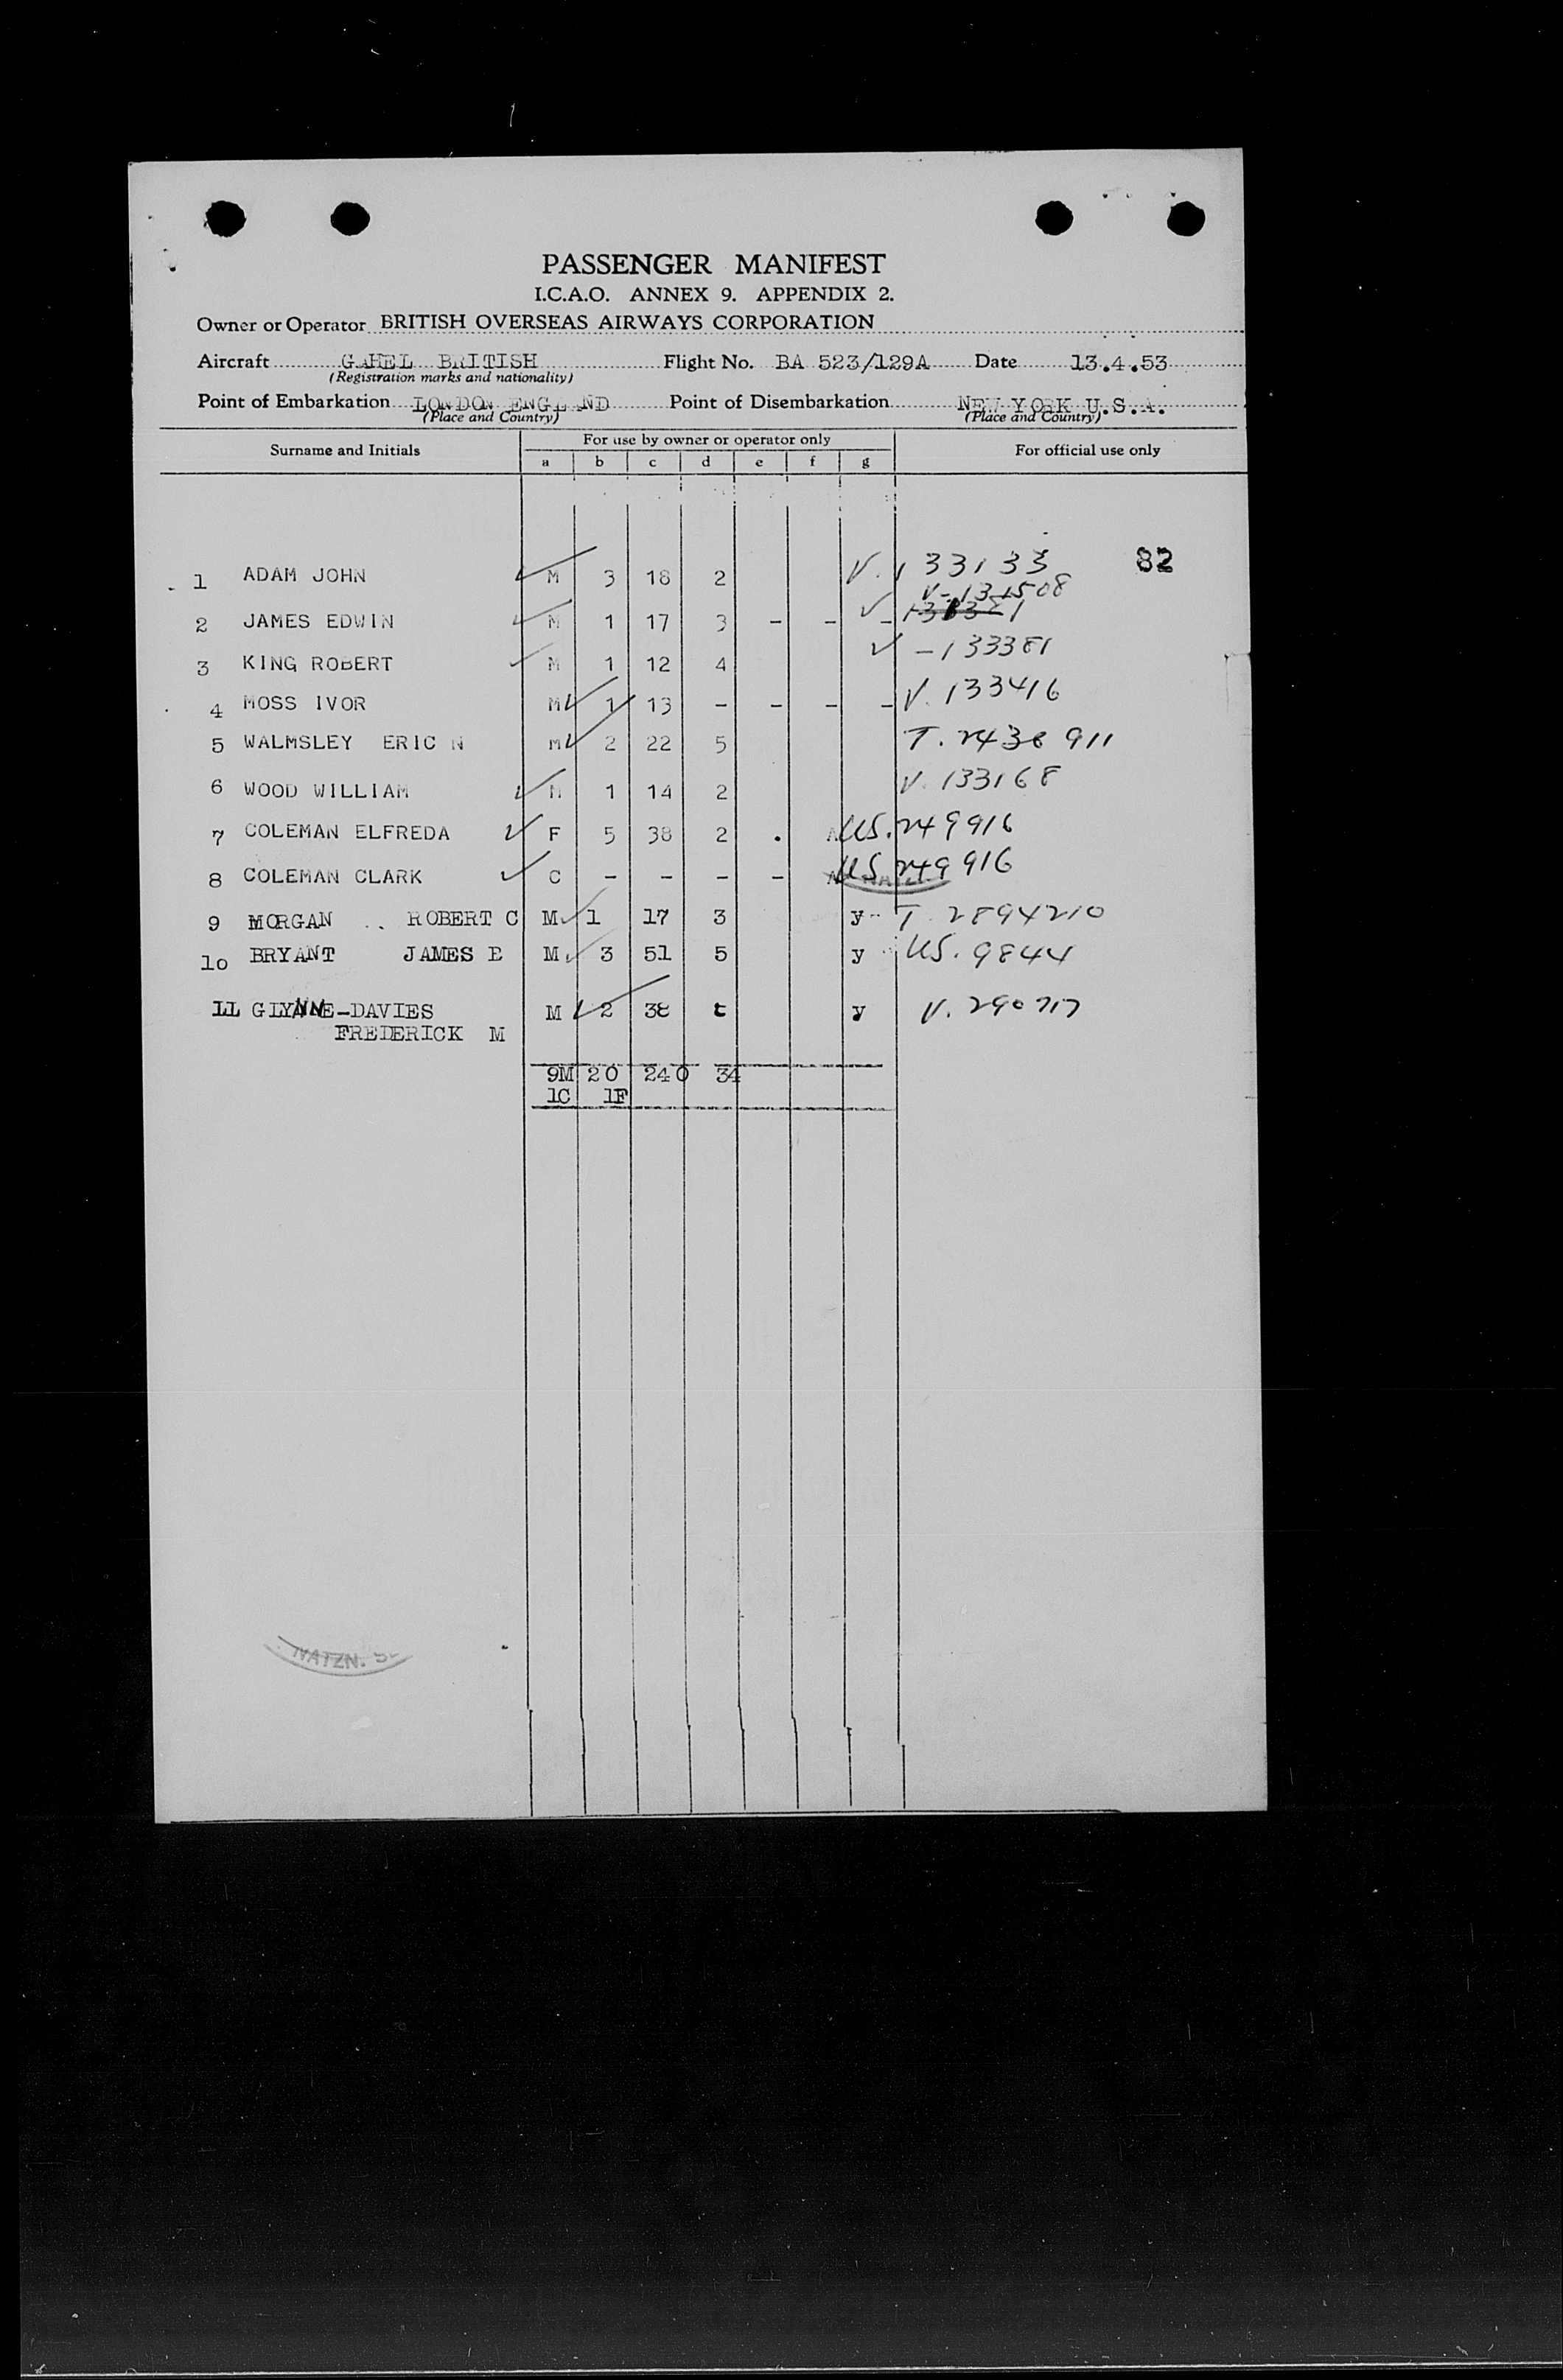 PASSENGER MANIFEST
I.C.A.O. ANNEX 9. APPENDIX 2.
Owner or Operator BRITISH OVERSEAS AIRWAYS CORPORATION
Aircraft GAHEL BRITISH Flight No. BA 523/129A Date 13.4.53
(Registration marks and nationality)
Point of Embarkation LONDON ENGLAND Point of Disembarkation NEW YORK U.S.A.
(Place and Country) (Place and Country)
Surname and Initials For use by owner or operator only For official use only
a b c d e f g
82
1 ADAM JOHN M 3 18 2 V. 133133
V-131508
2 JAMES EDWIN M 1 17 3 - - -
3 KING ROBERT M 1 12 4 -133381
4 MOSS IVOR M 1 13 - - - - V. 133416
5 WALMSLEY ERIC N M 2 22 5 T. 2438 911
6 WOOD WILLIAM M 1 14 2 V. 133168
7 COLEMAN ELFREDA F 5 38 2 . A US. 249916
8 COLEMAN CLARK C - - - - A US 249916
9 MORGAN .. ROBERT C M 1 17 3 y T. 2894210
10 BRYANT JAMES E M 3 51 5 y US. 9844
LL GLYNNE-DAVIES M 2 38 t y V. 290717
FREDERICK M
9M 20 240 34
1C 1F
NATZN.